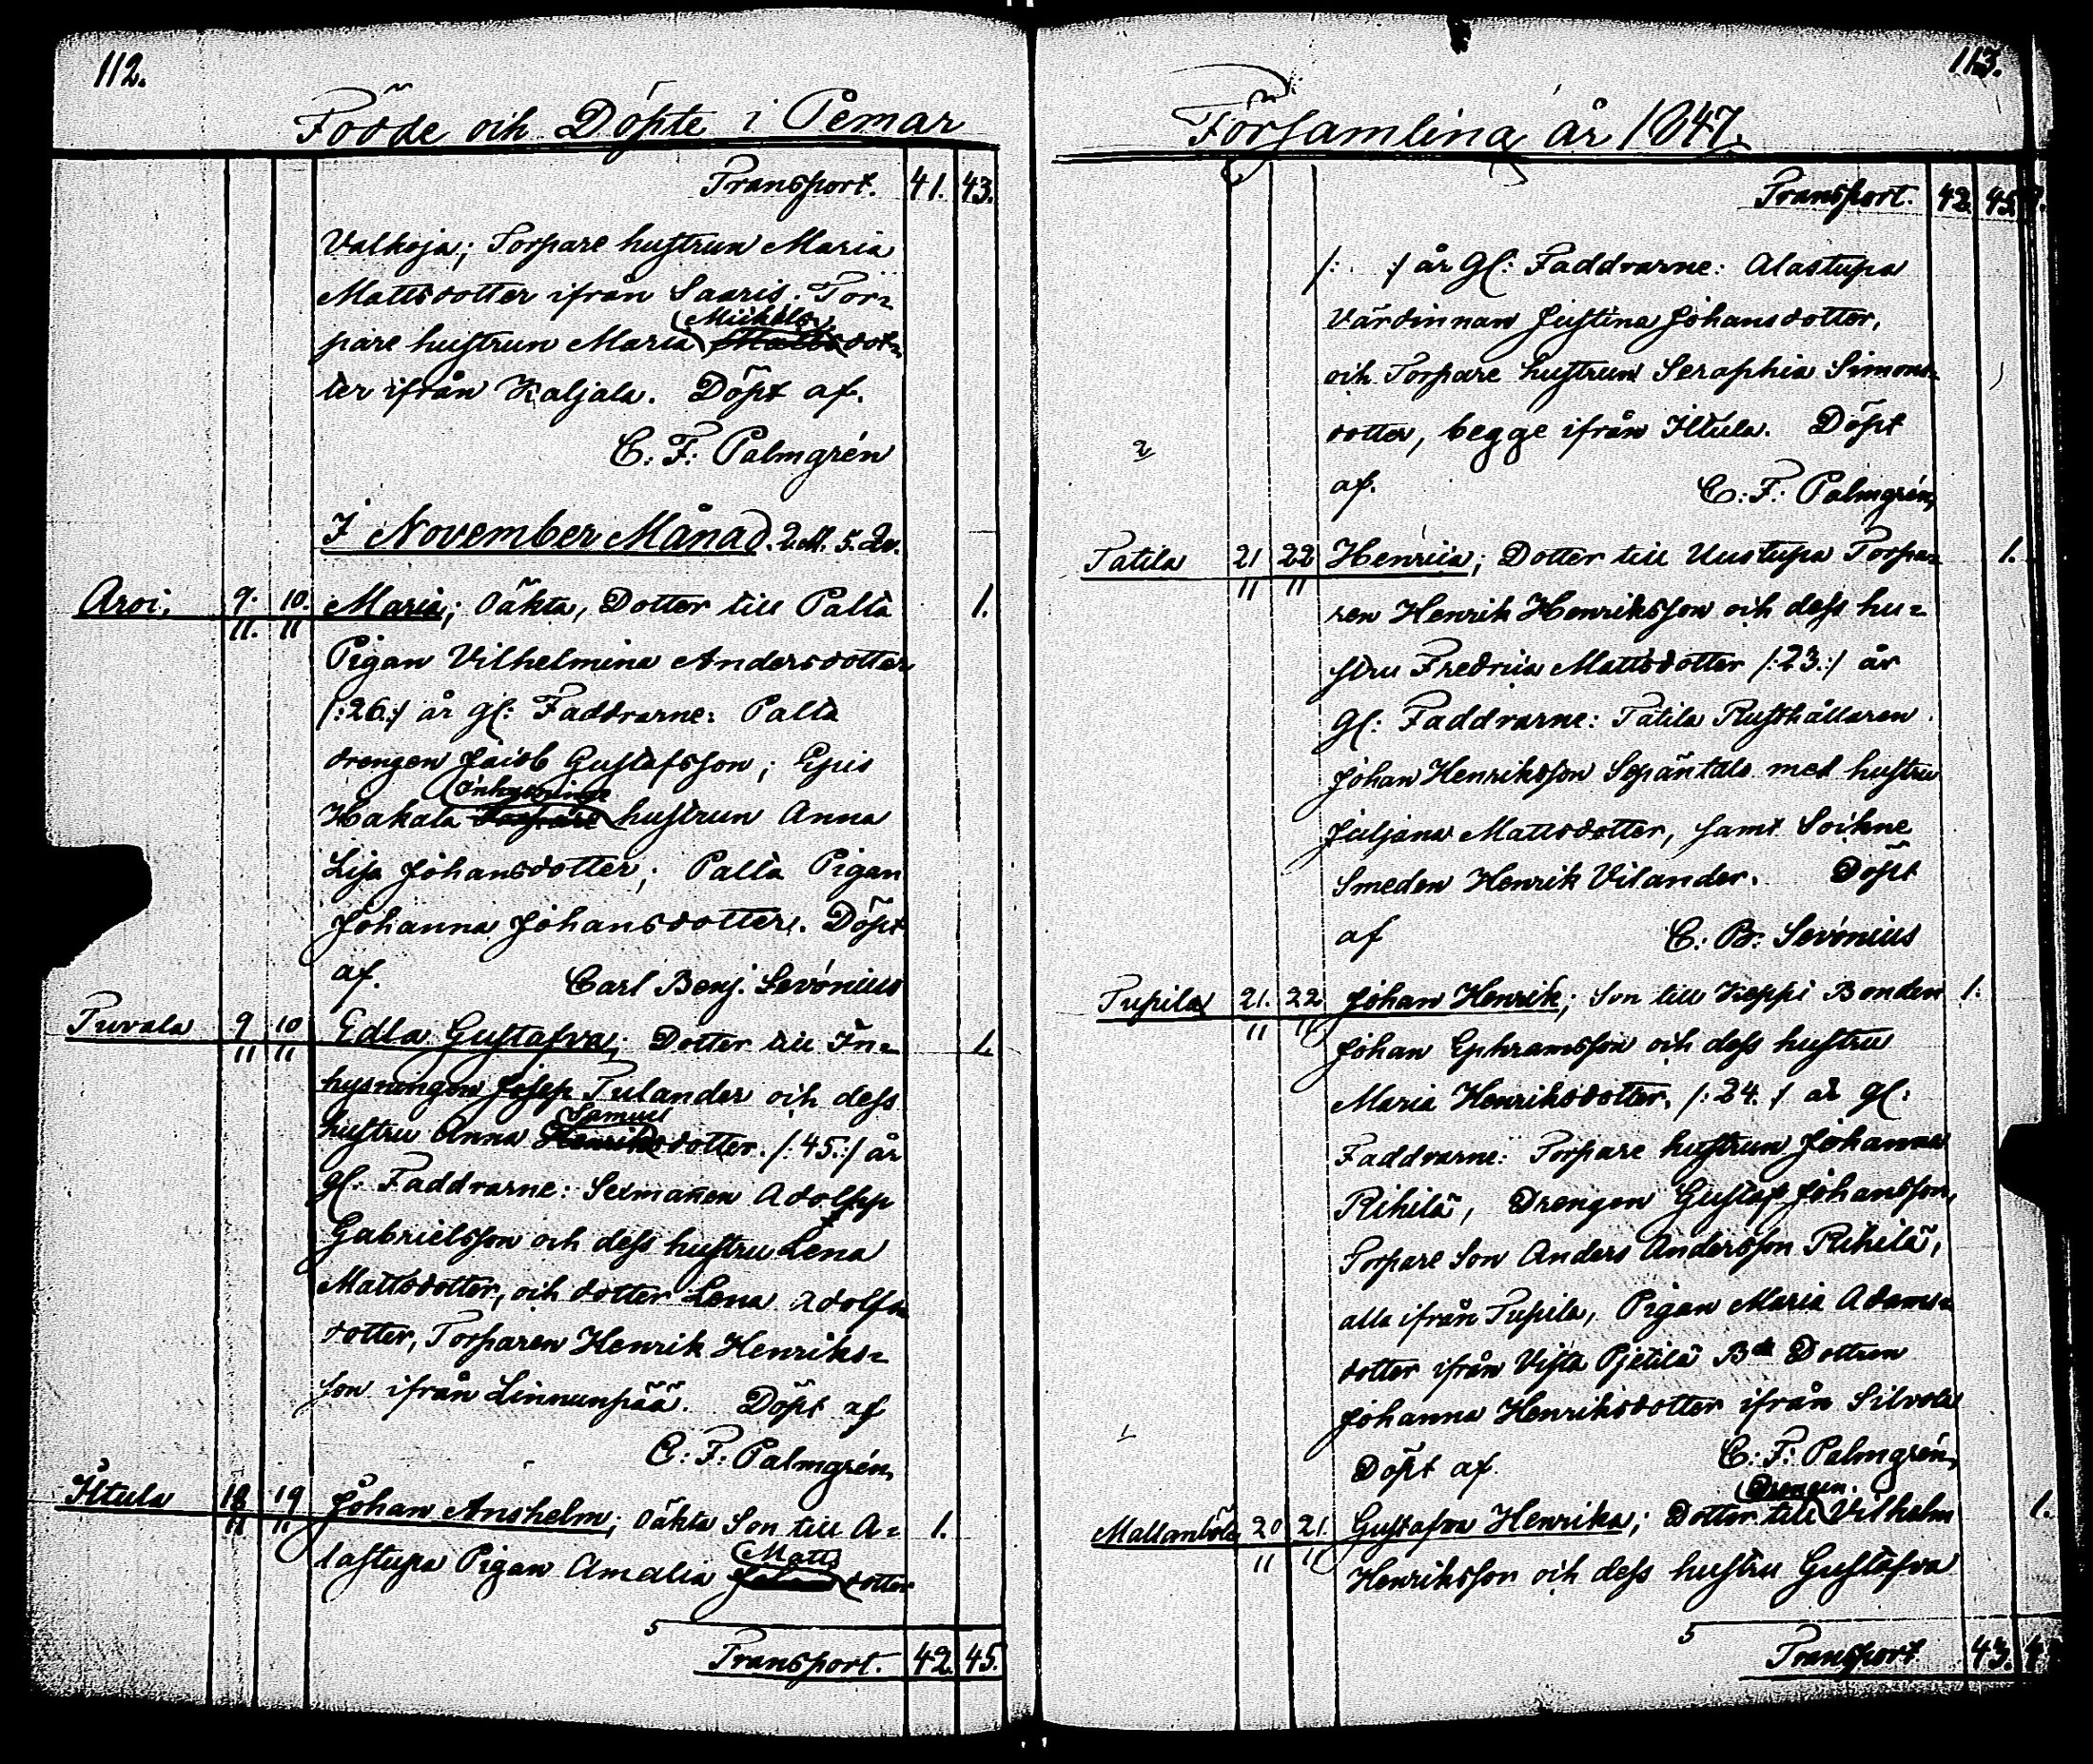 112.
Födde och Döpte i Pemar
Transport. 41. 43.
Valkoja; Torpare hustrun Maria
Mattsdotter ifrån Saaris. Tor=
Mickels
pare hustrun Maria Mattsdot=
ter ifrån Kaljala. Döpt af.
C. F. Palmgrén
I November Månad. 2 M. 5. Qv.
Aroi, 9. 10. Maria; Oäkta, Dotter till Palta 1.
11. 11
Pigan Vilhelmina Andersdotter
/:26:/ år gl: Faddrarne: Palta
drengen Jacob Gustafsson; Spis
Inhysninge
Hakala Torpare hustrun Anna
Lisa Johansdotter; Palta Pigan
Johanna Johansdotter. Döpt
af. Carl Benj. Sevónius
Tuvala 9 10 Edla Gustafva; Dotter till In= 1.
11 11
hysningen Josep Tulander och dess
Samuels
hustru Anna Henriksdotter. /:45:/ år
gl: Faddrarne: Sexmanen Adolph
Gabrielsson och dess hustru Lena
Mattsdotter, och dotter Lena Adolfs
dotter, Torparen Henrik Henriks=
son ifrån Linnunpää. Döpt af
C. F. Palmgrén
Iltula 18 19 Johan Anshelm; oäkta Son till A= 1.
11 11
Matts
lastupa Pigan Amalia dotter
5
Transport. 42. 45.
113.
Församling år 1847.
Transport. 42. 45.
/: :/ år gl: Faddrarne: Alastupa
Värdinnan Justina Johansdotter,
och Torpare hustrun Seraphia Simons=
dotter, begge ifrån Iltula. Döpt
2
af. C. F. Palmgrén
Tatila 21 22 Henrica; Dotter till Uustupa Torpa= 1.
11 11
ren Henrik Henriksson och dess hu=
stru Fredrica Mattsdotter /:23:/ år
gl: Faddrarne: Tatila Rusthållaren
Johan Henriksson Sepäntalo med hustru
Juljana Mattsdotter, samt Sockne
Smeden Henrik Vilander. Döpt
af C: B: Sevónius
Tupila 21. 22 Johan Henrik; Son till Keppi Bonden 1.
11 11
Johan Ephramsson och dess hustru
Maria Henriksdotter. /:24./ år gl:
Faddrarne: Torpare hustrun Johanna
Rihilä, Drengen Gustaf Johansson,
Torpare Son Anders Andersson Rihilä,
alla ifrån Tupila, Pigan Maria Adams=
dotter ifrån Vista Pjetilä Bde Dottren
Johanna Henriksdotter ifrån Silvola
Döpt af. C. F. Palmgrén
Drengen.
Mallanböle 20 21. Gustafva Henrika; Dotter till Vilhelm 1.
11 11
Henriksson och dess hustru Gustafva
5
Transport 43.